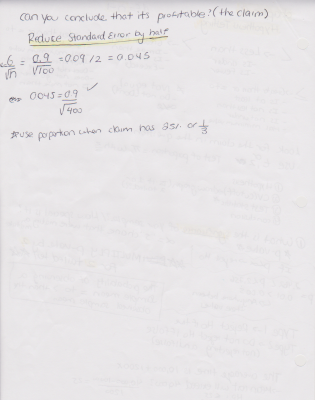 can you conclude that its profitable? (the claim)
Reduce Standard Error by half
σ/√n = 0.9/√100 = 0.09/2 = 0.045
0.045 = 0.9/√400 ✓
*use proportion when claim has 25% or 1/3